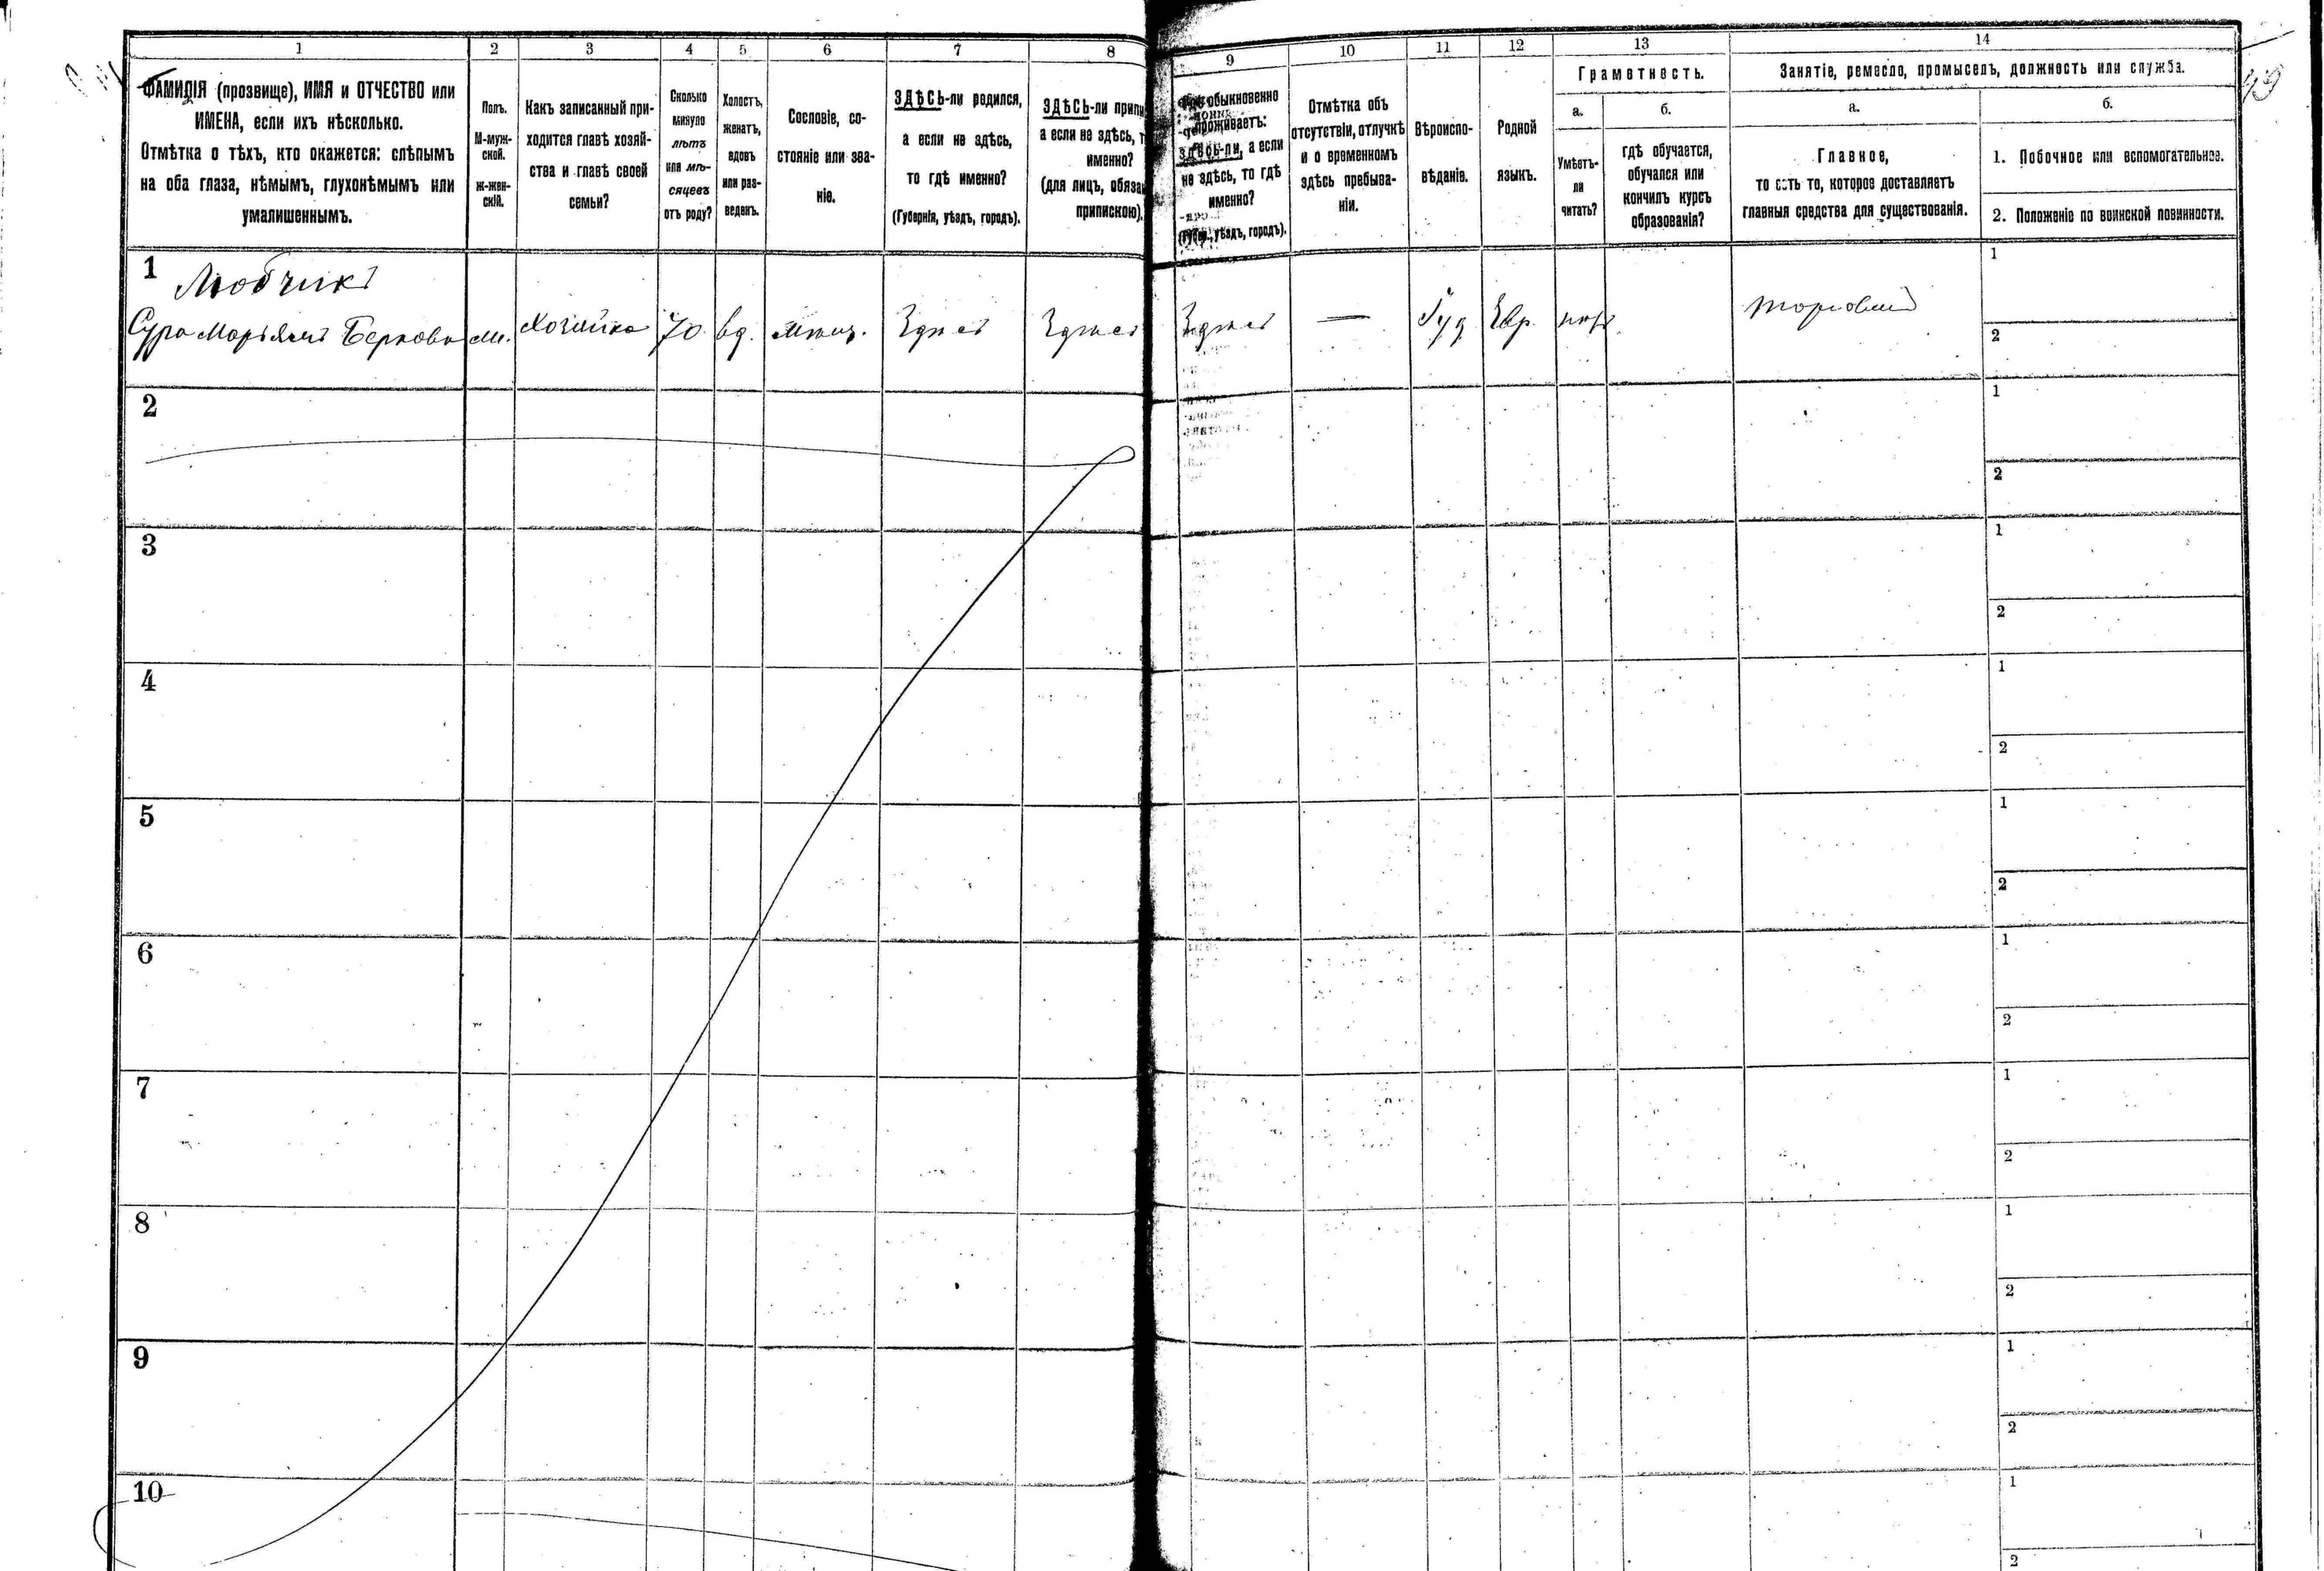 1 2 3 4 5 6 7 8
ФАМИЛІЯ (прозвище), ИМЯ и ОТЧЕСТВО или
ИМЕНА, если ихъ нѣсколько.
Отмѣтка о тѣхъ, кто окажется: слѣпымъ
на оба глаза, нѣмымъ, глухонѣмымъ или
умалишеннымъ.
Полъ.
М-муж-
ской.
ж-жен-
скій.
Какъ записанный при-
ходится главѣ хозяй-
ства и главѣ своей
семьи?
Сколько
минуло
лѣтъ
или мѣ-
сяцевъ
отъ роду?
Холостъ,
женатъ,
вдовъ
или раз-
веденъ.
Сословіе, со-
стояніе или зва-
ніе.
ЗДѢСЬ-ли родился,
а если не здѣсь,
то гдѣ именно?
(Губернія, уѣздъ, городъ).
ЗДѢСЬ-ли
а если не здѣсь,
именно?
(для лицъ,
припискою).
1
Любчикъ
Сура Марьямъ Беркова
Хозяйка
70
вд.
мѣщ.
Здѣсь
Здѣсь
2
3
4
5
6
7
8
9
10
9 10 11 12 13 14
обыкновенно
проживаетъ:
здѣсь-ли, а если
не здѣсь, то гдѣ
именно?
уѣздъ, городъ).
Отмѣтка объ
отсутствіи, отлучкѣ
и о временномъ
здѣсь пребыва-
ніи.
Вѣроиспо-
вѣданіе.
Родной
языкъ.
Грамотность.
а.
Умѣетъ-
ли
читать?
б.
гдѣ обучается,
обучался или
кончилъ курсъ
образованія?
Занятіе, ремесло, промыселъ, должность или служба.
а.
Главное,
то есть то, которое доставляетъ
главныя средства для существованія.
б.
1. Побочное или вспомогательное.
2. Положеніе по воинской повинности.
Здѣсь
—
Іуд.
Евр.
нѣтъ
1
2
1
2
1
2
1
2
1
2
1
2
1
2
1
2
1
2
1
2